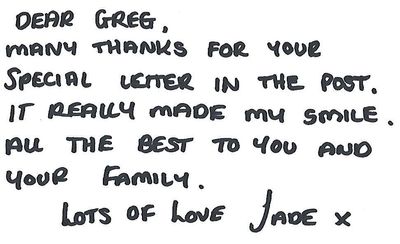 DEAR GREG,
MANY THANKS FOR YOUR
SPECIAL LETTER IN THE POST.
IT REALLY MADE MY SMILE.
ALL THE BEST TO YOU AND
YOUR FAMILY.
LOTS OF LOVE JADE X